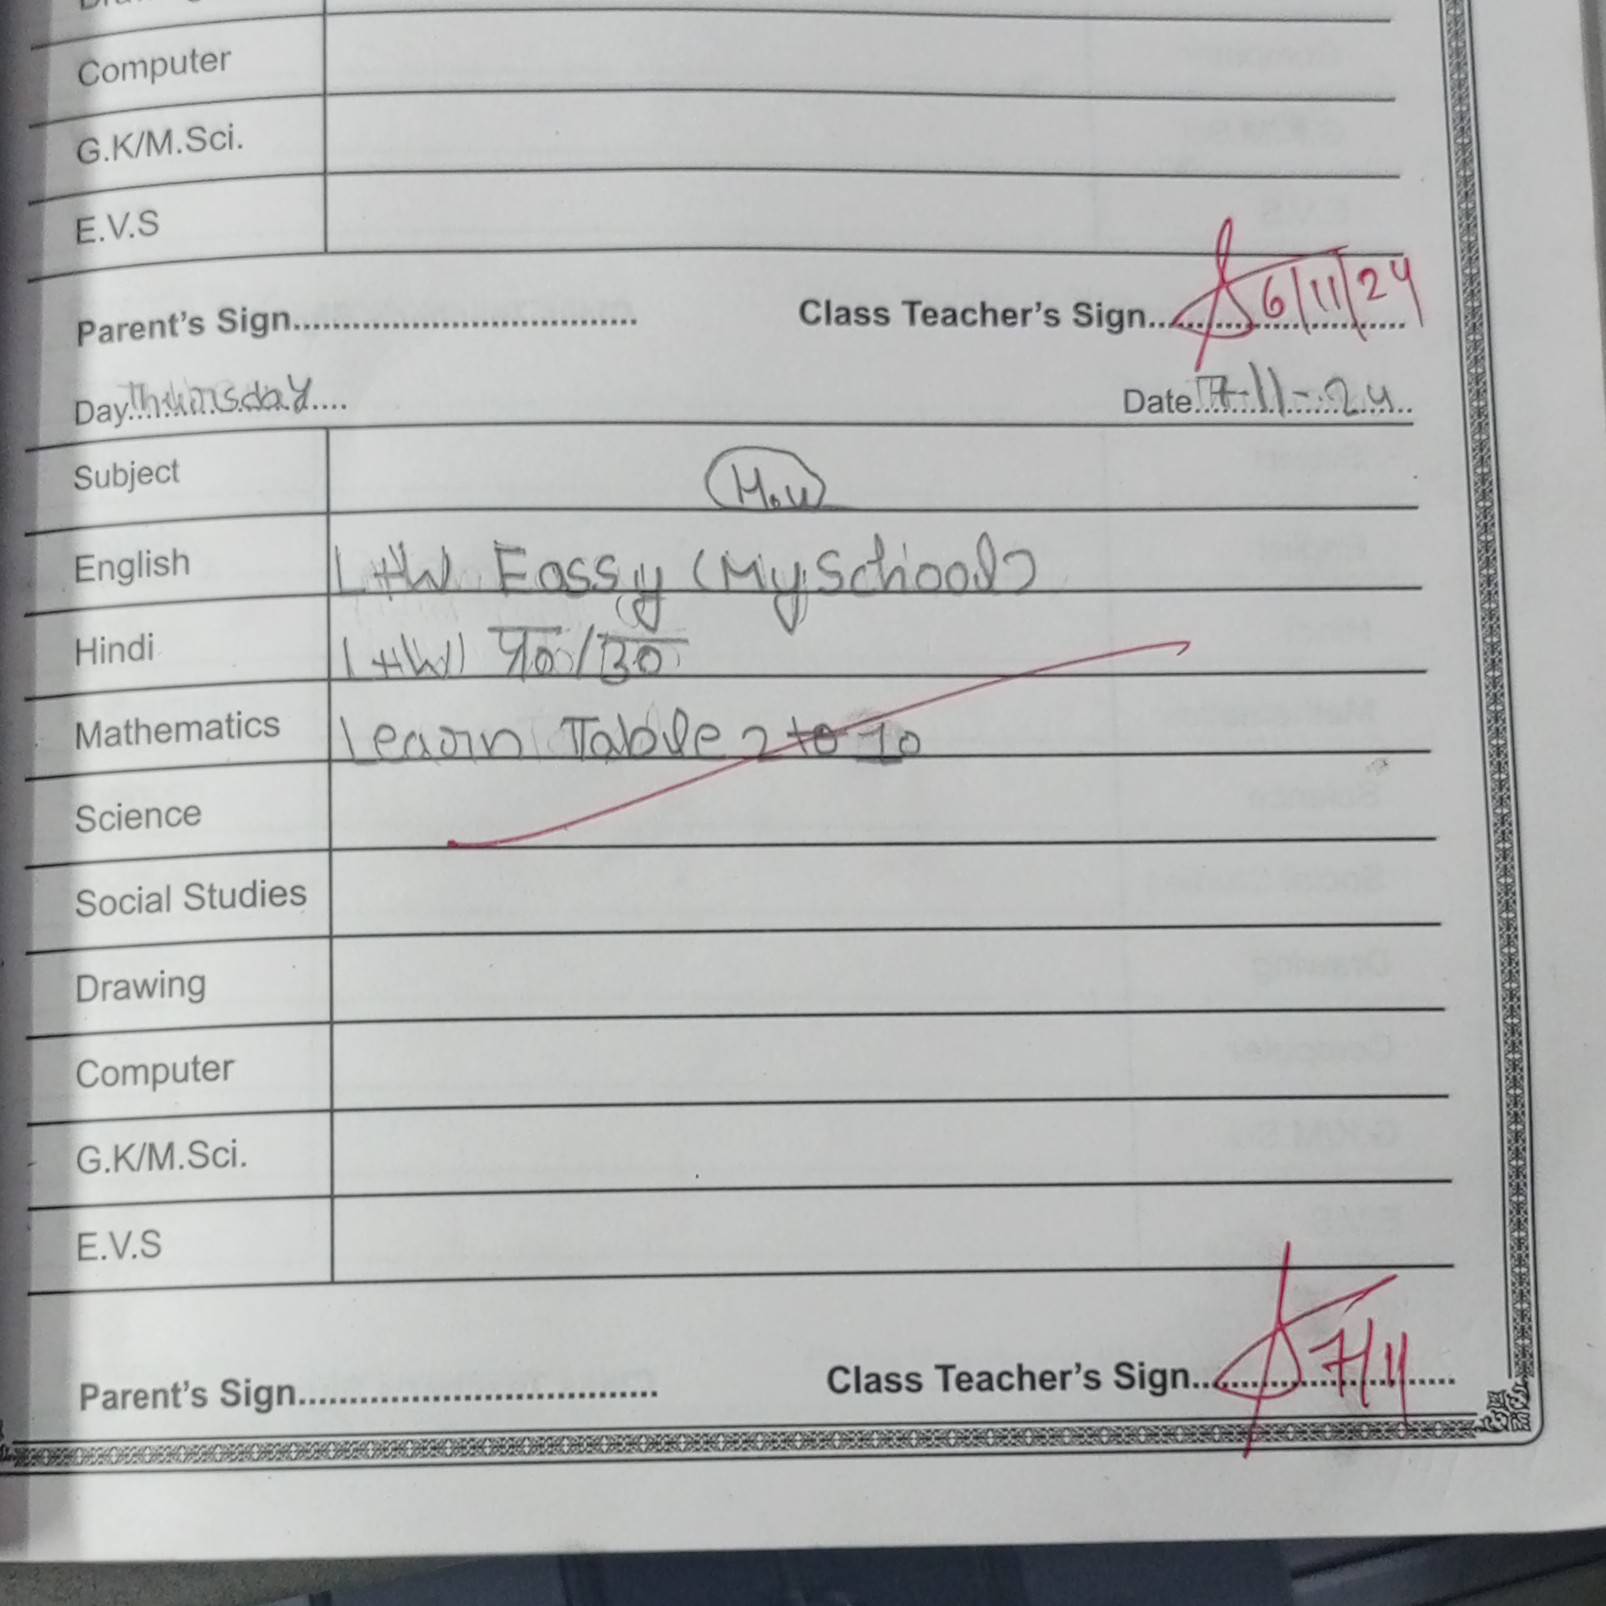 Computer
G.K/M.Sci.
E.V.S
Parent's Sign.................................. Class Teacher's Sign.. 6/11/24
Day Thursday.... Date 7-11-24
Subject H.W
English L+W Eassy (My School)
Hindi L+W
Mathematics Learn Table 2 to 10
Science
Social Studies
Drawing
Computer
G.K/M.Sci.
E.V.S
Parent's Sign.................................. Class Teacher's Sign.. 7/11